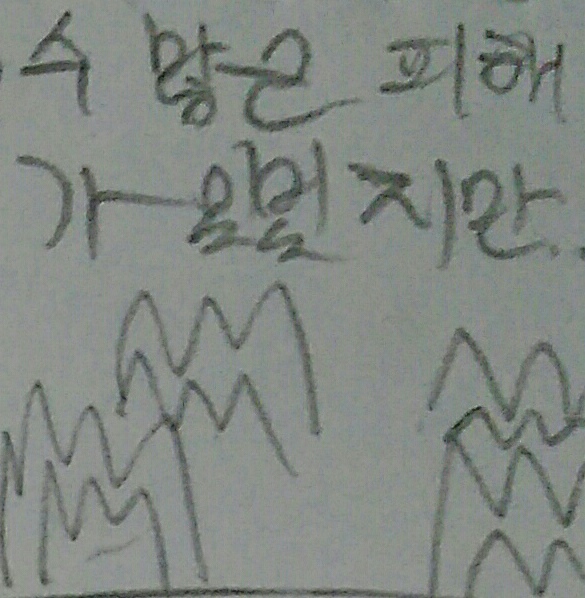 수 많은 피해
가 일렬지만..